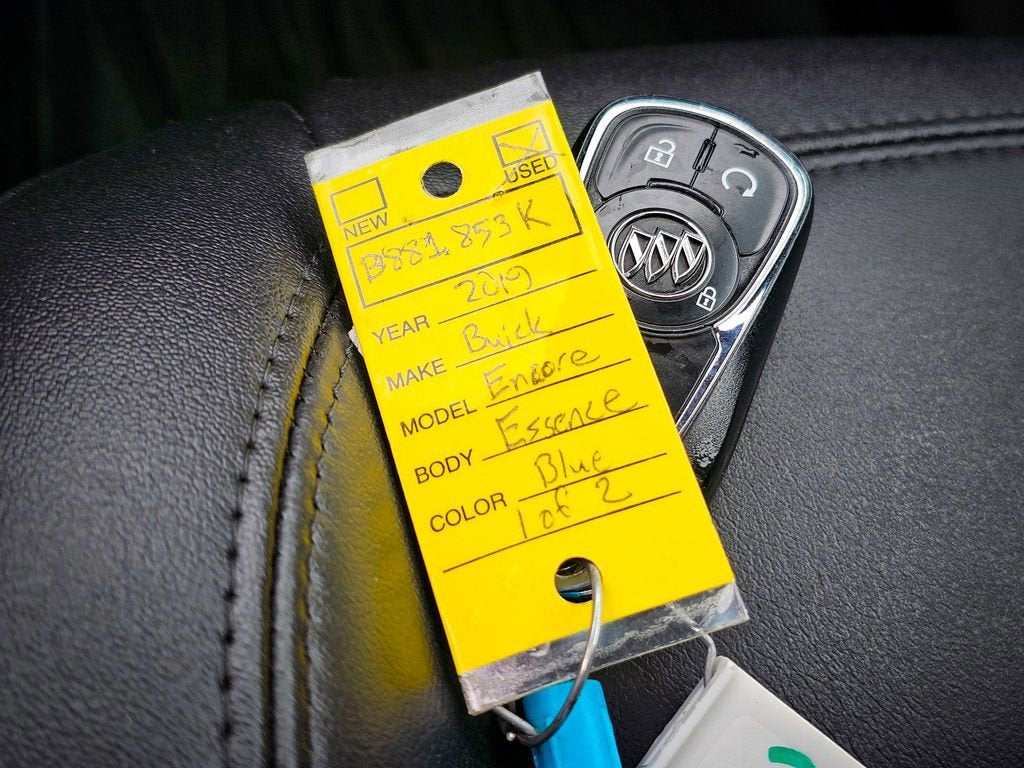 NEW USED
B881853K
YEAR 2019
MAKE Buick
MODEL Encore
BODY Essence
COLOR Blue
1 of 2